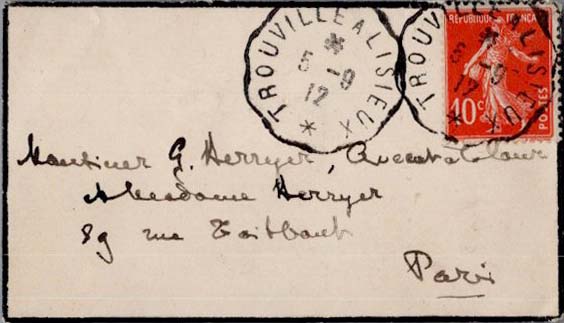 TROUVILLE A LISIEUX
5 -9
12
TROUVILLE A LISIEUX
5 -9
12
RÉPUBLIQUE FRANCAISE
10c
POSTES
Monsieur G. Herryer, Avocat à la Cour
et Madame Herryer
89 rue Taitbout
Paris